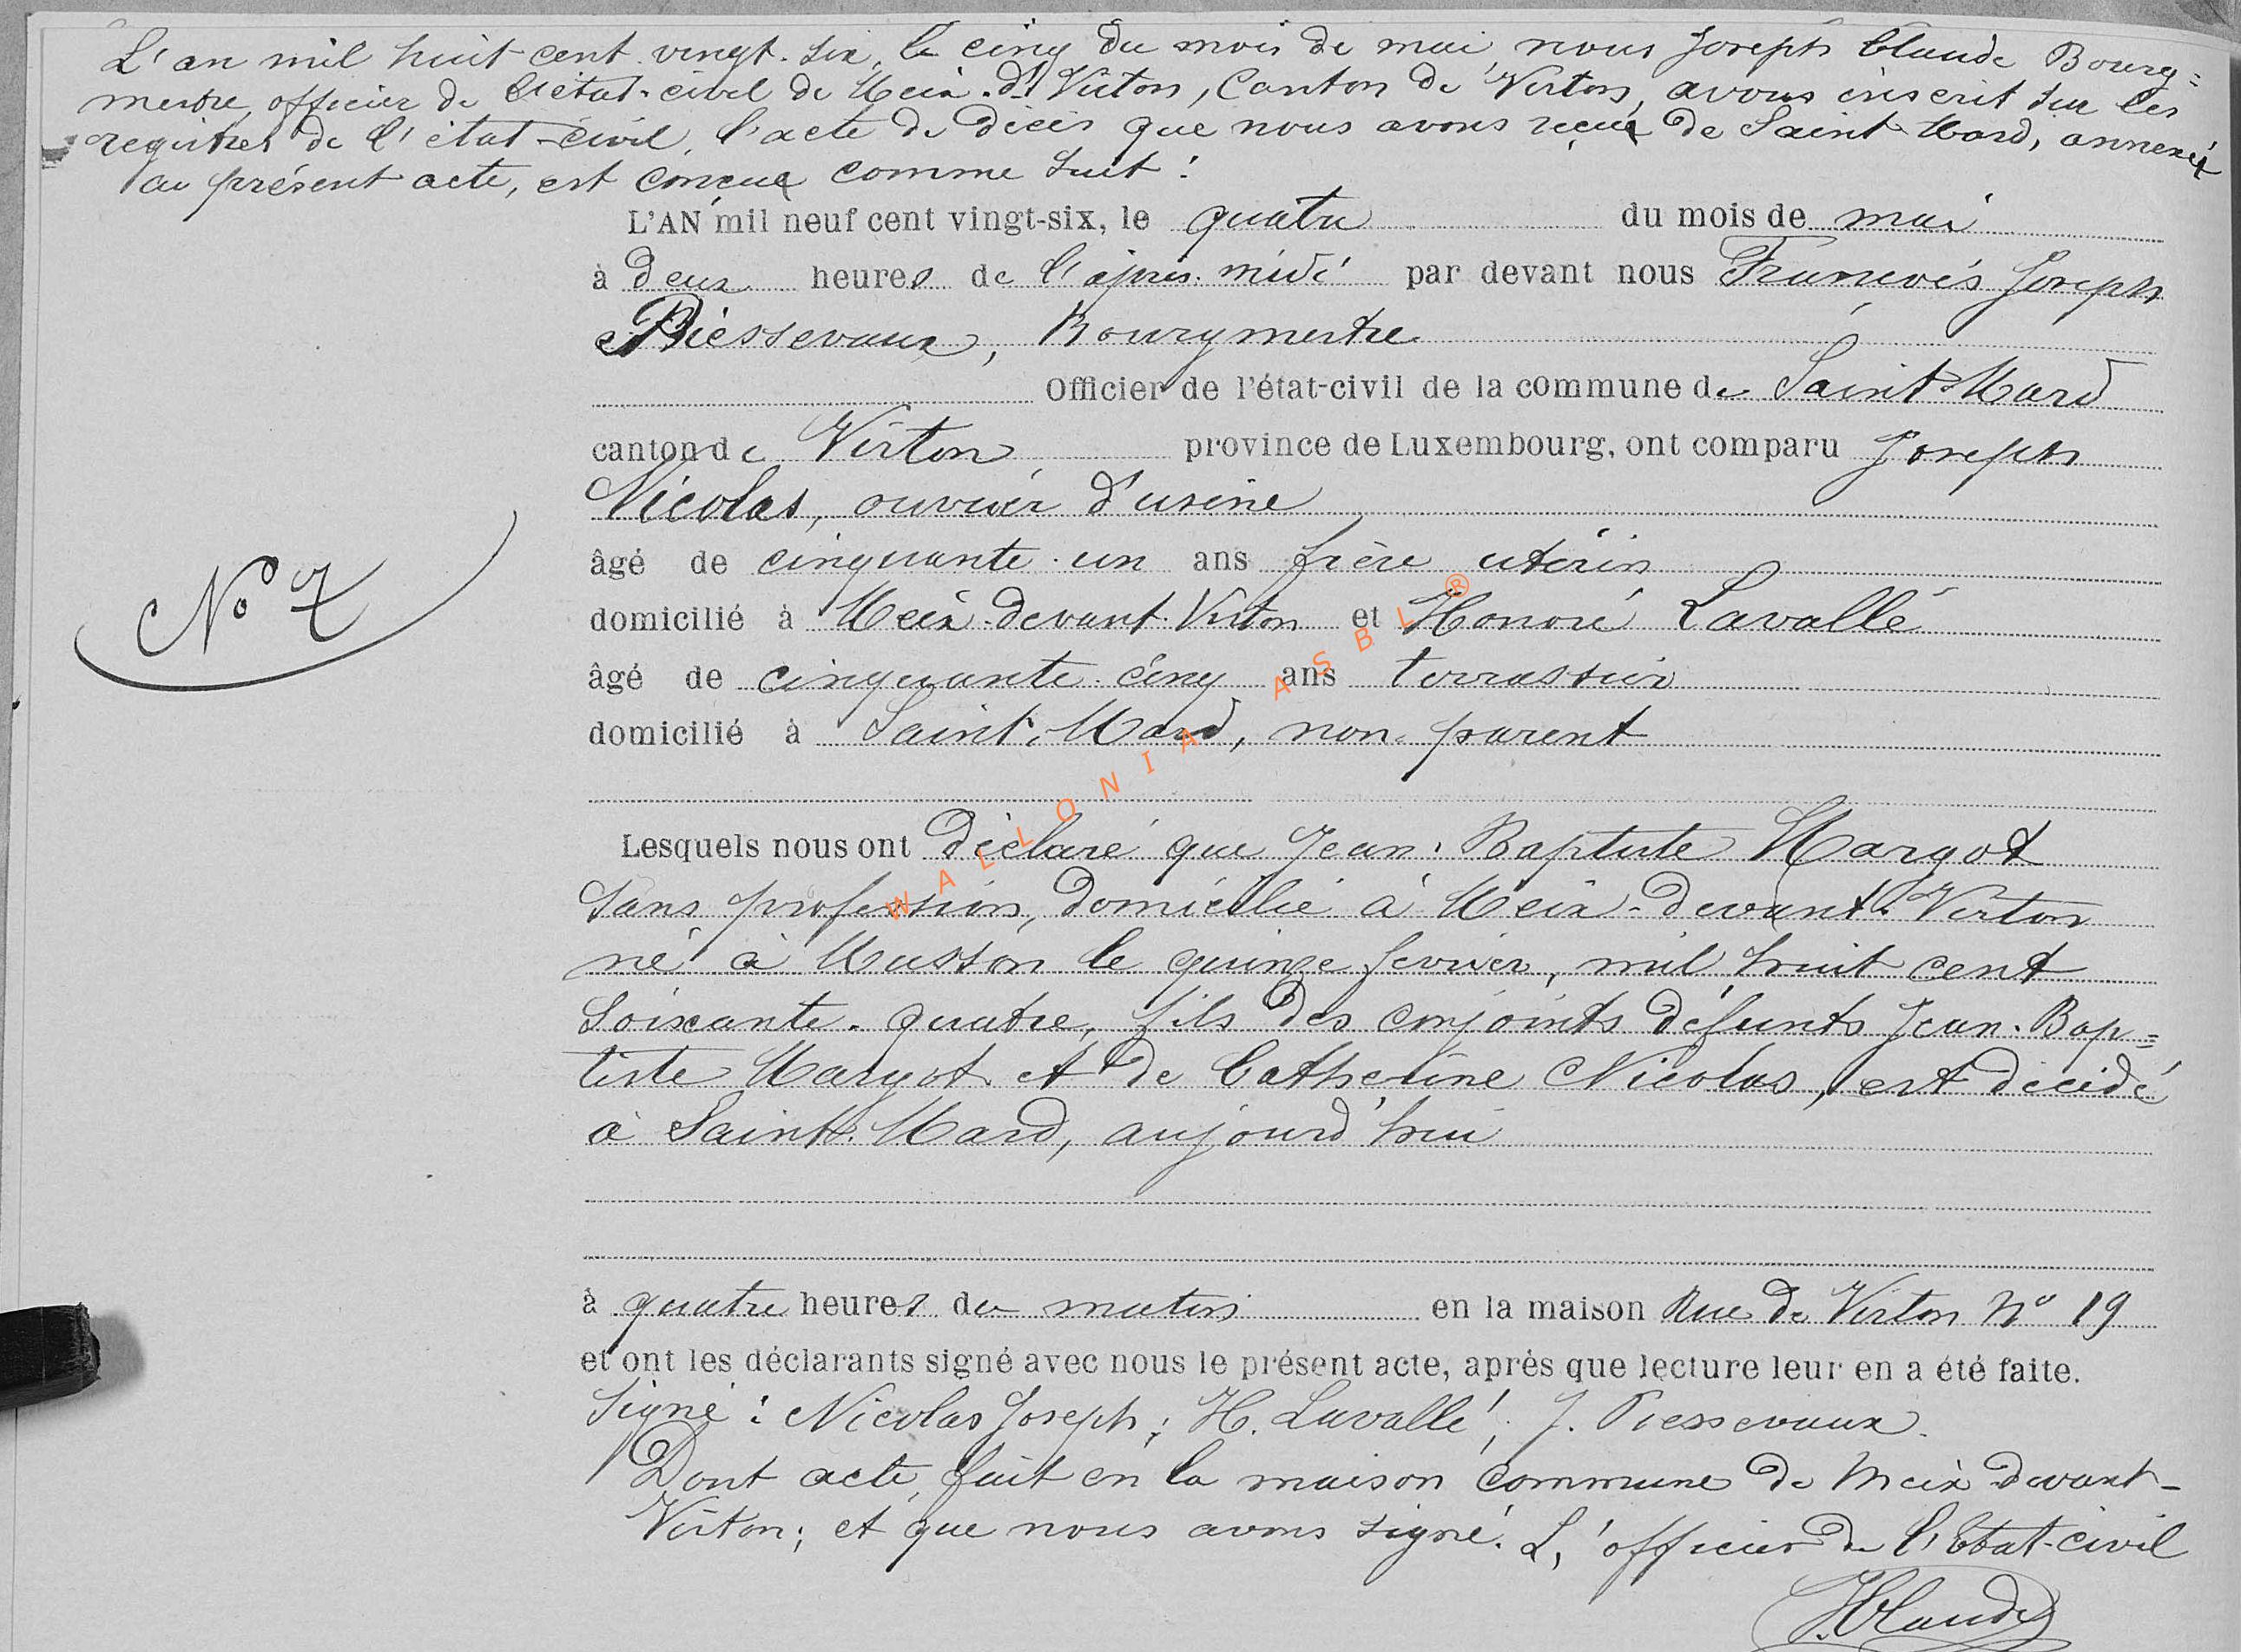 L'an mil huit cent vingt-six, le cinq du mois de mai, nous Joseph Claude Bourg=
mestre, officier de l'état-civil de Meix-dt Virton, Canton de Virton, avons inscrit sur les
registres de l'état-civil, l'acte de décès que nous avons reçue de Saint-Mard, annexée
au présent acte, est conçue comme suit :
L'AN mil neuf cent vingt-six, le quatre du mois de mai
à deux heures de l'après-midi par devant nous François Joseph
Piessevaux, Bourgmestre
Officier de l'état-civil de la commune de Saint-Mard
canton de Virton province de Luxembourg, ont comparu Joseph
Nicolas, ouvrier d'usine
No 7
âgé de cinquante-un ans frère utérin
domicilié à Meix-devant-Virton et Honoré Lavallé
âgé de cinquante-cinq ans terrassier
domicilié à Saint-Mard, non-parent
Lesquels nous ont déclaré que Jean-Baptiste Margot
sans profession, domicilié à Meix-devant-Virton
né à Musson le quinze février, mil huit cent
soixante-quatre, fils des conjoints défunts Jean-Bap=
tiste Margot et de Catherine Nicolas, est décédé
à Saint-Mard, aujourd'hui
à quatre heures du matin en la maison Rue de Virton No 19
et ont les déclarants signé avec nous le présent acte, après que lecture leur en a été faite.
Signé : Nicolas Joseph ; H. Lavallé ; J. Piessevaux.
Dont acte, fait en la maison commune de Meix-devant-
Virton ; et que nous avons signé. L'officier de l'Etat-civil
JClaude
WALLONIA ASBL®